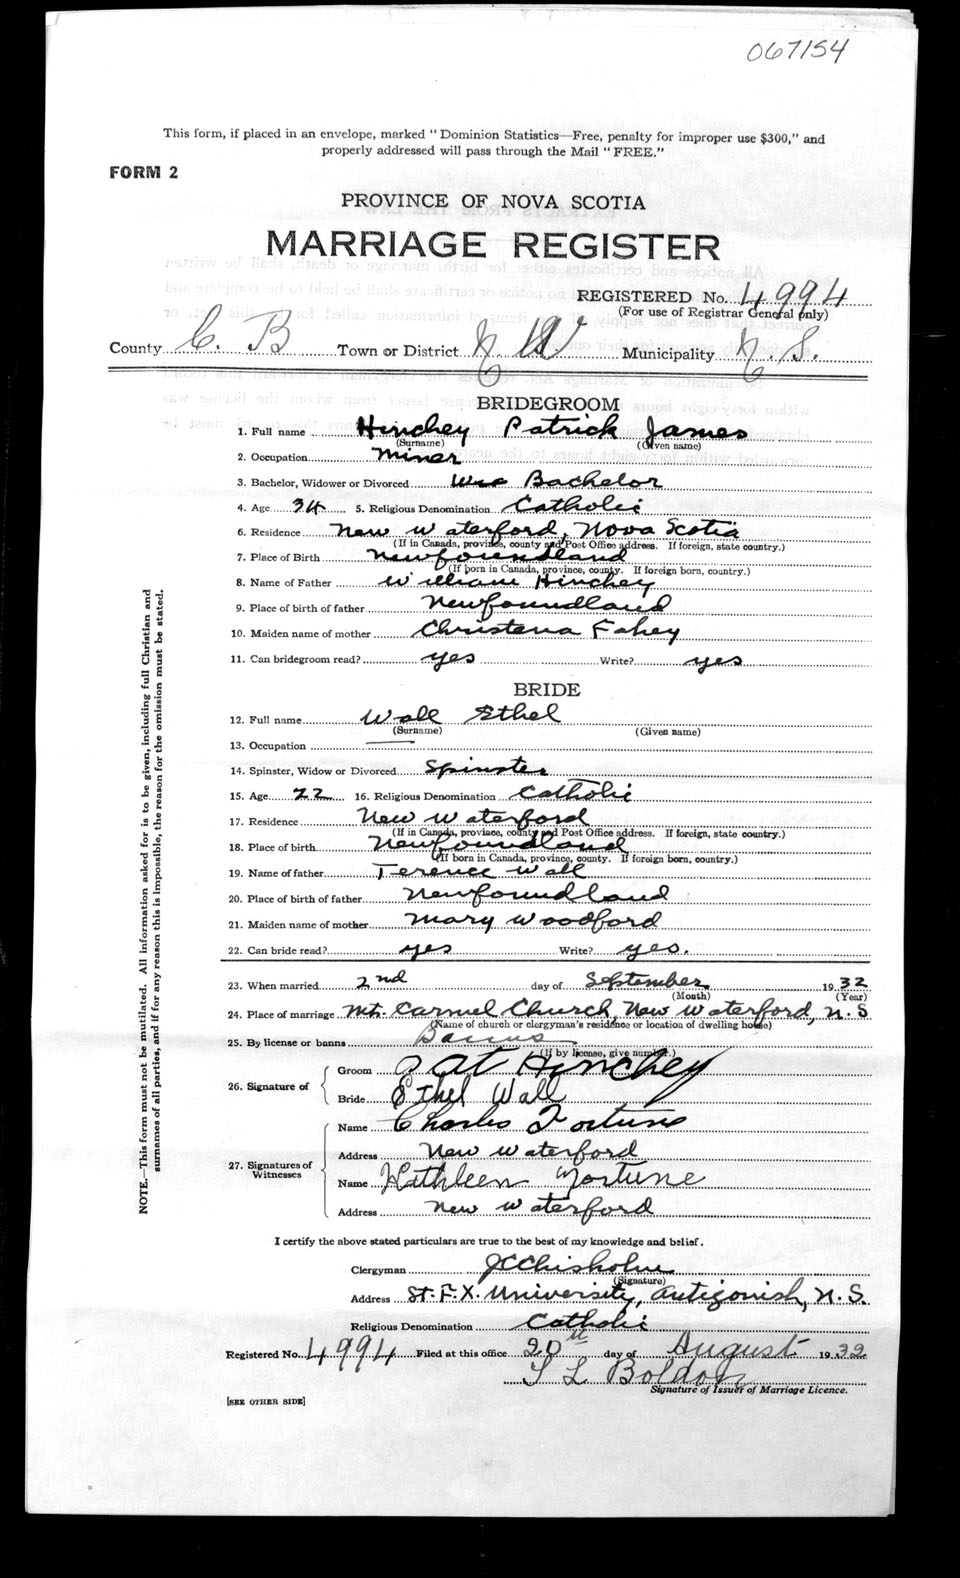 067154
This form, if placed in an envelope, marked "Dominion Statistics—Free, penalty for improper use $300," and
properly addressed will pass through the Mail "FREE."
FORM 2
PROVINCE OF NOVA SCOTIA
MARRIAGE REGISTER
REGISTERED No. 4994
(For use of Registrar General only)
County C. B Town or District N. W Municipality N. S.
BRIDEGROOM
1. Full name Hinchey Patrick James
(Surname) (Given name)
2. Occupation miner
3. Bachelor, Widower or Divorced Bachelor
4. Age 34 5. Religious Denomination Catholic
6. Residence New Waterford, Nova Scotia
(If in Canada, province, county and Post Office address. If foreign, state country.)
7. Place of Birth Newfoundland
(If born in Canada, province, county. If foreign born, country.)
8. Name of Father William Hinchey
9. Place of birth of father Newfoundland
10. Maiden name of mother Christena Fahey
11. Can bridegroom read? yes Write? yes
BRIDE
12. Full name Wall Ethel
(Surname) (Given name)
13. Occupation —
14. Spinster, Widow or Divorced Spinster
15. Age 22 16. Religious Denomination Catholic
17. Residence New Waterford
(If in Canada, province, county and Post Office address. If foreign, state country.)
18. Place of birth Newfoundland
(If born in Canada, province, county. If foreign born, country.)
19. Name of father Terence Wall
20. Place of birth of father Newfoundland
21. Maiden name of mother Mary Woodford
22. Can bride read? yes Write? yes.
23. When married 2nd day of September 1932
(Month) (Year)
24. Place of marriage Mt. Carmel Church, New Waterford, N. S
(Name of church or clergyman's residence or location of dwelling house)
25. By license or banns Banns
(If by license, give number.)
26. Signature of
Groom Pat Hinchey
Bride Ethel Wall
27. Signatures of Witnesses
Name Charles Fortune
Address New Waterford
Name Kathleen Fortune
Address New Waterford
I certify the above stated particulars are true to the best of my knowledge and belief.
Clergyman J C Chisholm
(Signature)
Address St. F. X. University, Antigonish, N. S.
Religious Denomination Catholic
Registered No. 4994 Filed at this office 20th day of August 1932
Signature of Issuer of Marriage Licence.
[SEE OTHER SIDE]
NOTE.—This form must not be mutilated. All information asked for is to be given, including full Christian and
surnames of all parties, and if for any reason this is impossible, the reason for the omission must be stated.